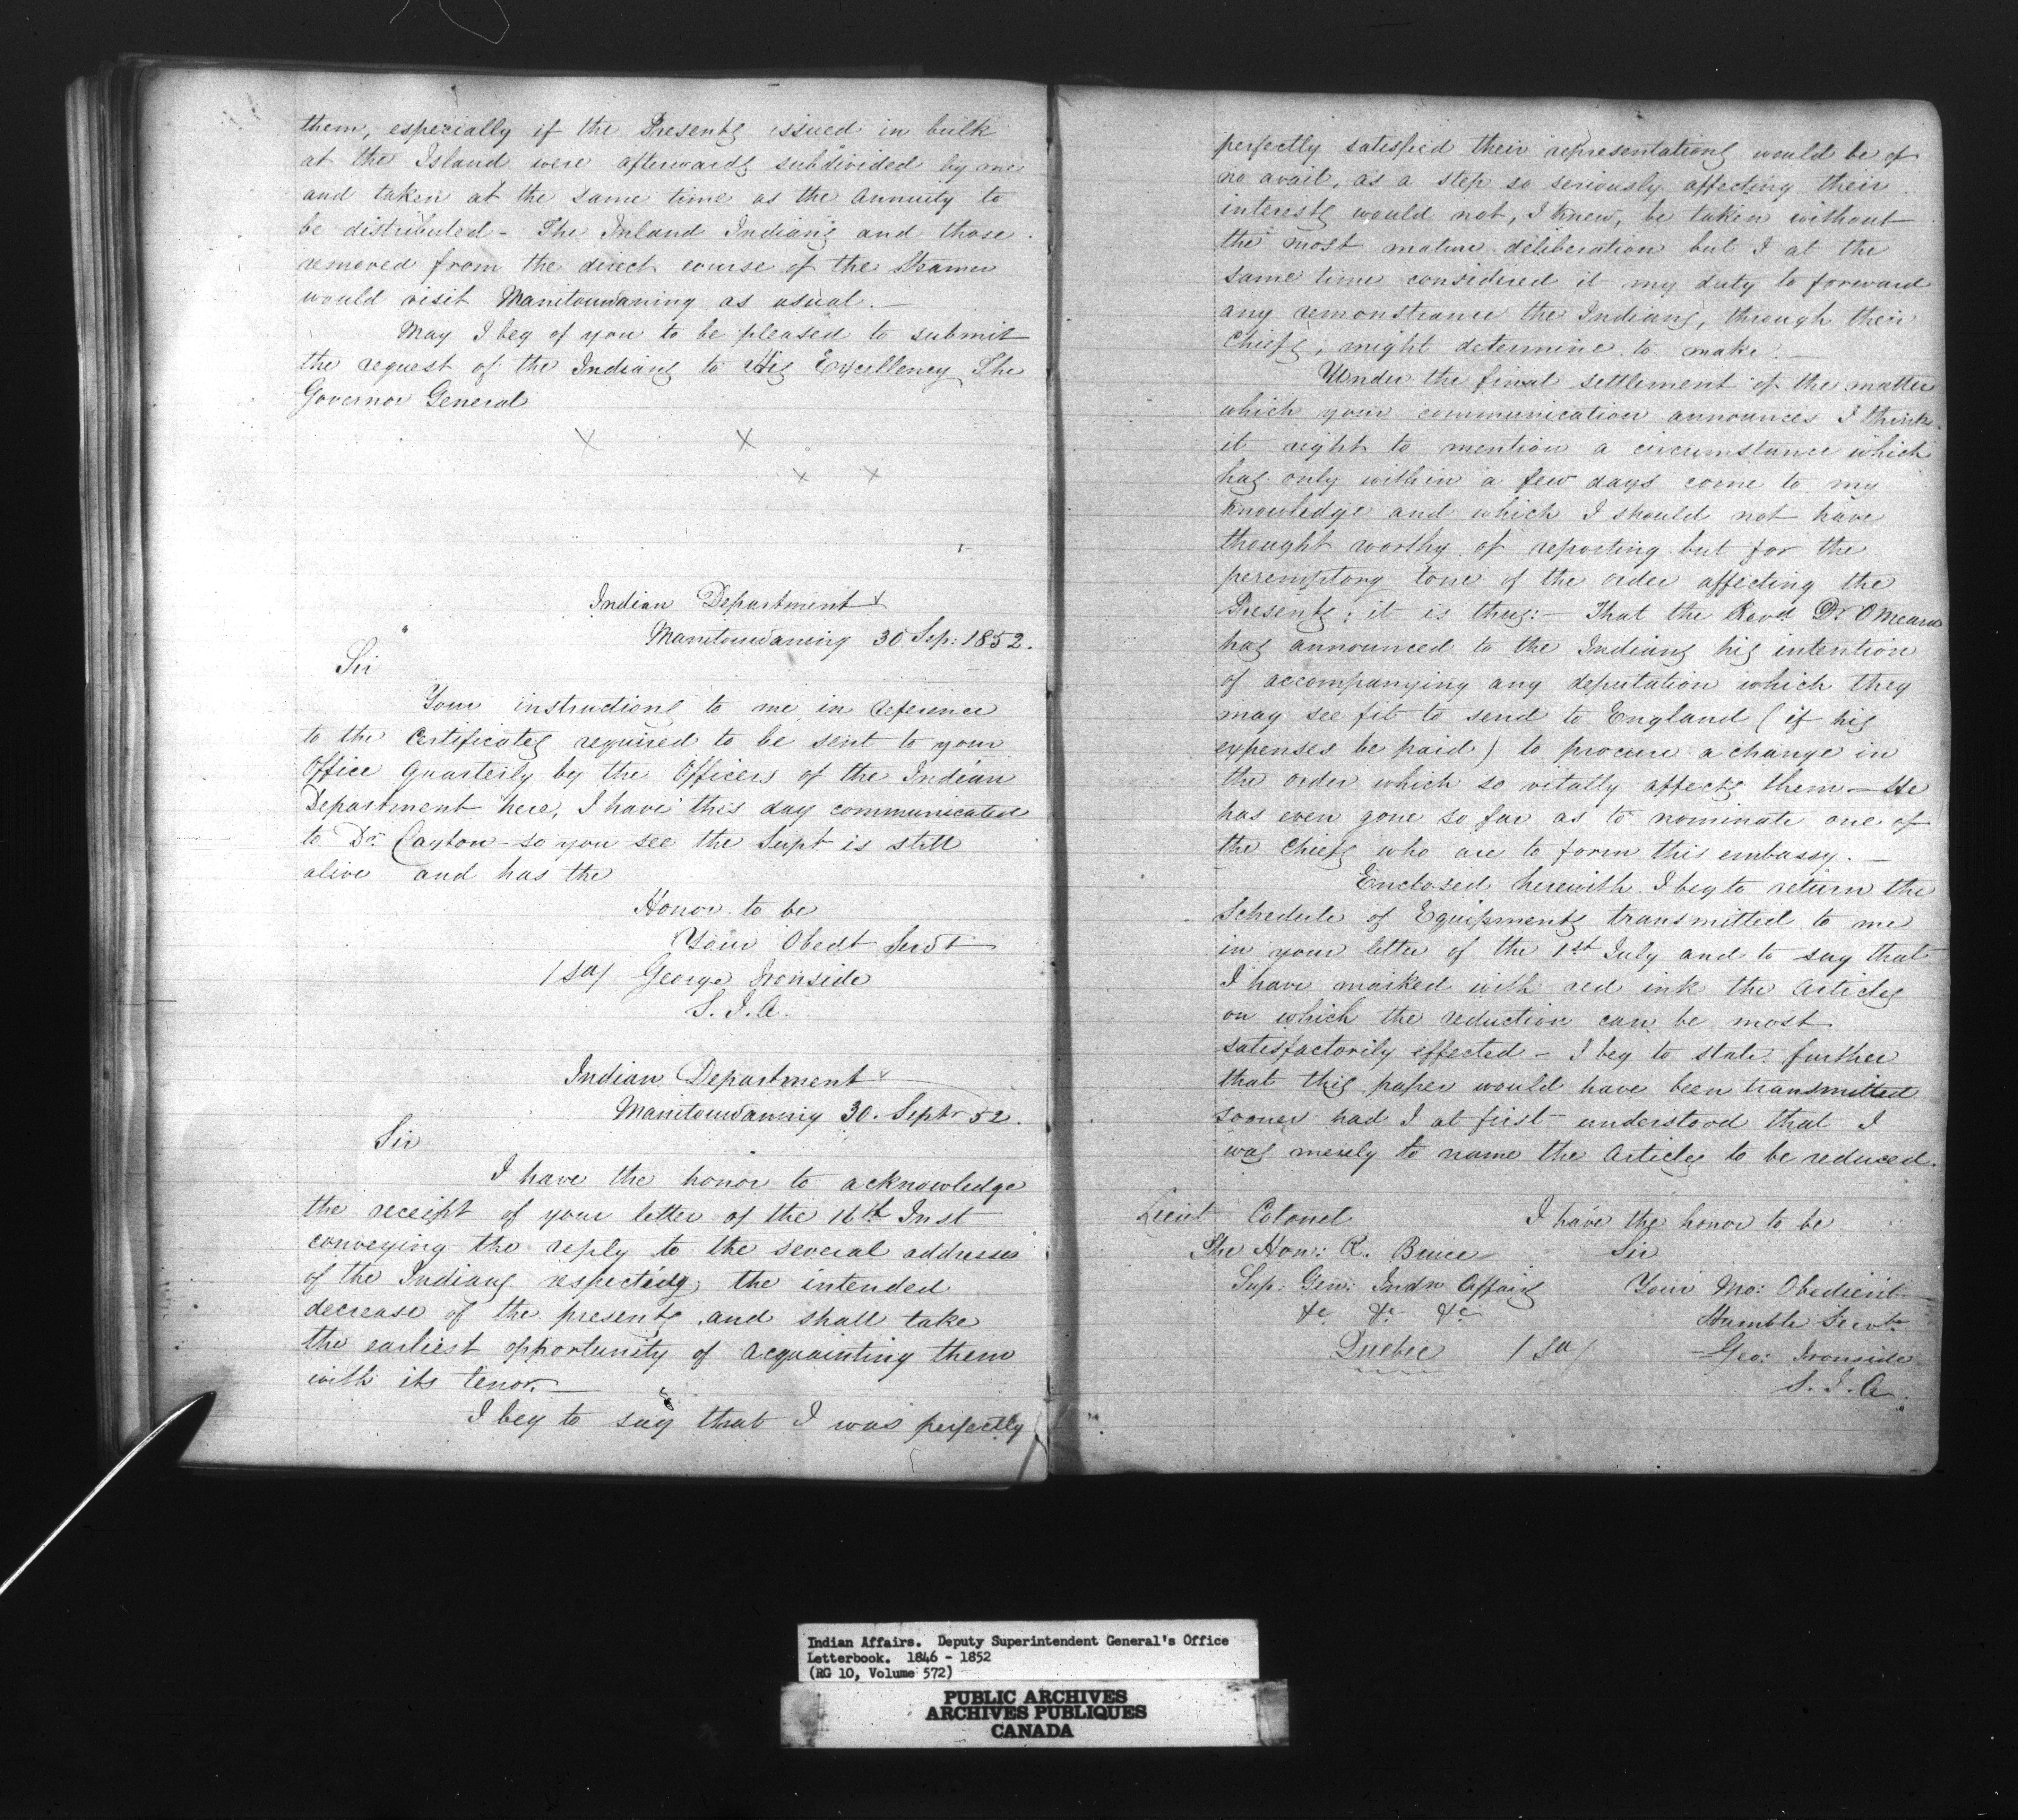 them, especially if the Presents issued in bulk
at the Island were afterwards subdivided by me
and taken at the same time as the Annuity to
be distributed - The Inland Indians and those
removed from the direct course of the Steamer
would visit Manitouwaning as usual. —
May I beg of you to be pleased to submit
the request of the Indians to His Excellency The
Governor General
X X
X X
Indian Department X
Manitouwaning 30 Sep: 1852.
Sir
Your instructions to me in reference
to the Certificates required to be sent to your
Office Quarterly by the Officers of the Indian
Department here, I have this day communicated
to Dr. Layton - so you see the Supt is still
alive and has the
Honor to be
Your Obedt Servt
/Sd/ George Ironside
S. I. A.
Indian Department
Manitouwaning 30. Septr 52.
Sir
I have the honor to acknowledge
the receipt of your letter of the 16th Inst
conveying the reply to the several addresses
of the Indians respecting the intended
decrease of the presents and shall take
the earliest opportunity of acquainting them
with its tenor. —
I beg to say that I was perfectly
perfectly satisfied their representations would be of
no avail, as a step so seriously affecting their
interests would not, I knew, be taken without
the most mature deliberation but I at the
same time considered it my duty to forward
any remonstrance the Indians, through their
Chiefs, might determine to make. —
Under the final settlement of the matter
which your communication announces I think
it right to mention a circumstance which
has only within a few days come to my
knowledge and which I should not have
thought worthy of reporting but for the
peremptory tone of the order affecting the
Presents; it is thus: - That the Revd Dr O'Meara
has announced to the Indians his intention
of accompanying any deputation which they
may see fit to send to England (if his
expenses be paid) to procure a change in
the order which so vitally affects them — He
has even gone so far as to nominate one of
the Chiefs who are to form this embassy. —
Enclosed herewith I beg to return the
Schedule of Equipments transmitted to me
in your letter of the 1st July and to say that
I have marked with red ink the Articles
on which the reduction can be most
satisfactorily effected - I beg to state further
that this paper would have been transmitted
sooner had I at first understood that I
was merely to name the Articles to be reduced.
Lieut Colonel I have the honor to be
The Hon: R. Bruce Sir
Sup: Gen: Indn Affairs Your Mo: Obedient
&c &c &c Humble Servt
Quebec /Sd/ Geo: Ironside
S. I. A.
Indian Affairs. Deputy Superintendent General's Office
Letterbook. 1846 - 1852
(RG 10, Volume 572)
PUBLIC ARCHIVES
ARCHIVES PUBLIQUES
CANADA